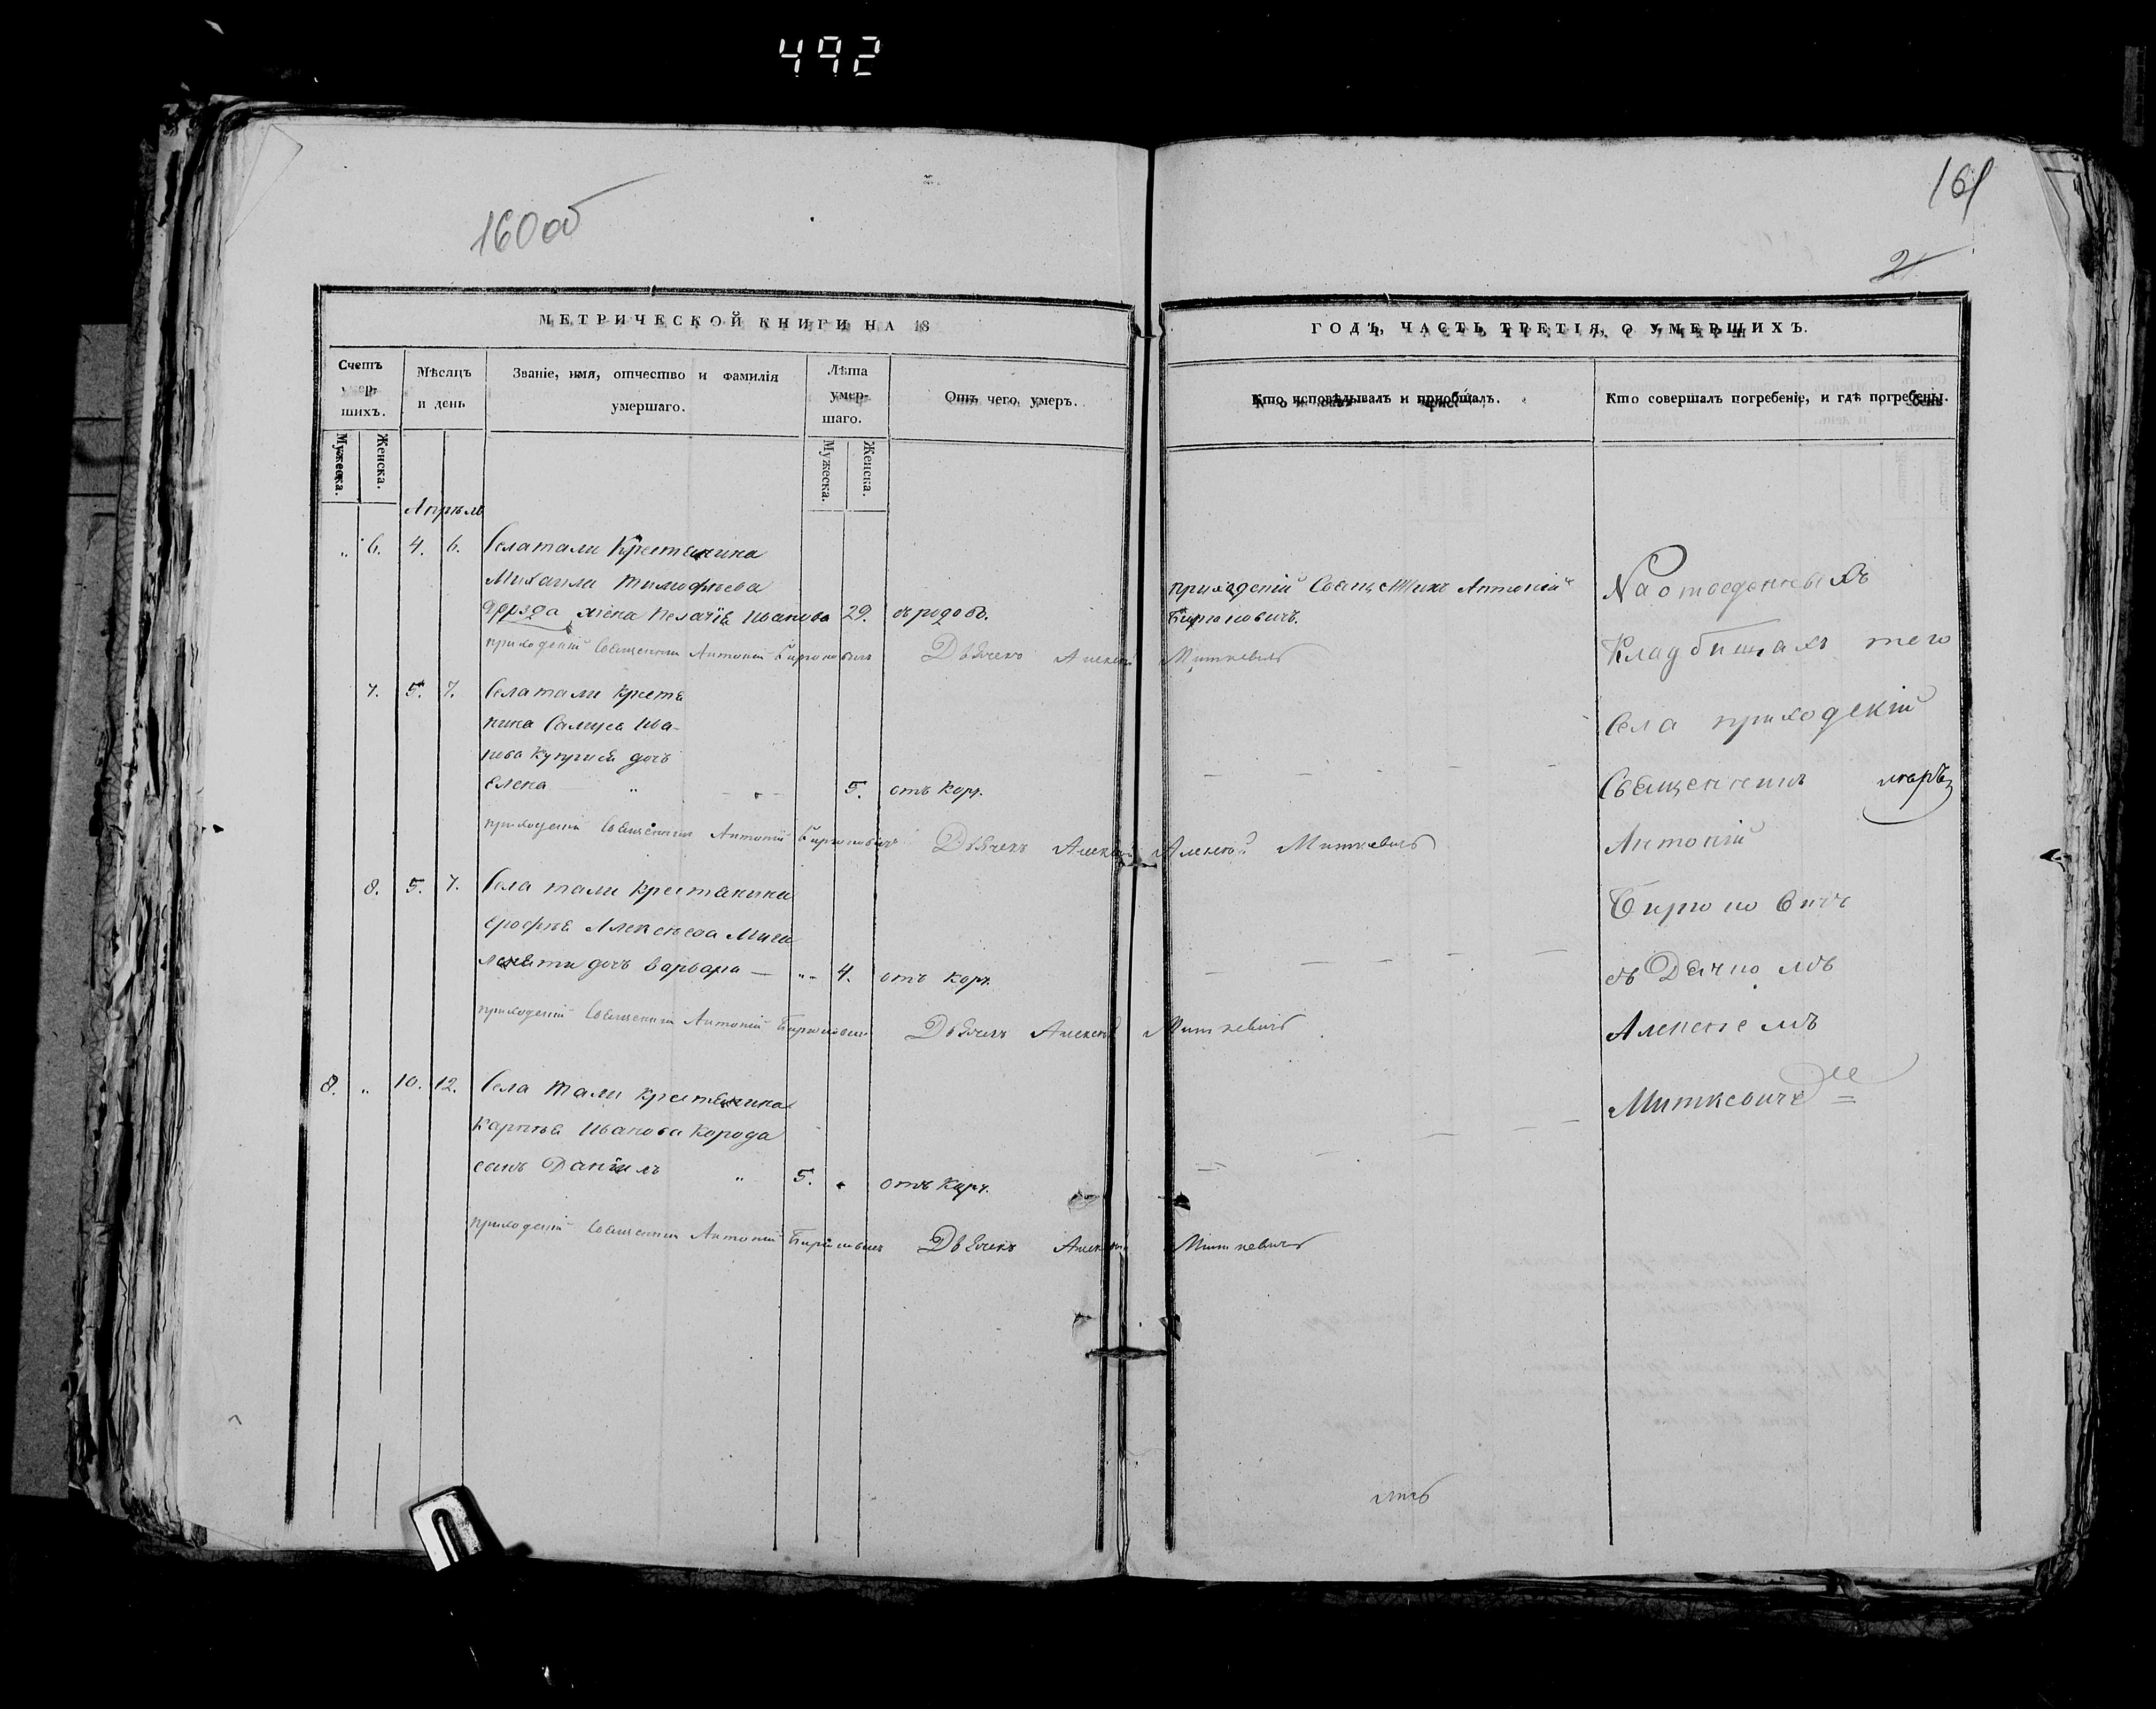 492
160 об
161
2
МЕТРИЧЕСКОЙ КНИГИ НА 18
ГОДЪ, ЧАСТЬ ТРЕТІЯ, О УМЕРШИХЪ.
Счетъ умер-шихъ.
Мѣсяцъ и день
Званіе, имя, отчество и фамилія умершаго.
Лѣта умер-шаго.
Отъ чего умеръ.
Кто исповѣдывалъ и пріобщалъ.
Кто совершалъ погребеніе, и гдѣ погребены.
Мужеска. Женска.
Мужеска. Женска.
Апрѣль
„ 6. 4. 6. Села тали Крестянина
Михаила Тимофѣева
жена Пелагія Иванова 29. въ родовъ.
приходскій Священникъ Антоній
Бирюковичъ.
приходскій Священникъ Антоній Бирюковичъ Дьячекъ Алексей Миткевичъ
7. 5. 7. Села тали Крестя
нина Самуся Ива-
нова дочь
Елена „ 5. отъ кору.
приходскій Священникъ Антоній Бирюковичъ Дьячекъ Алексей Алексей Миткевичъ
8. 5. 7. Села тали крестянина
Ерофѣя Алексѣева
дочь Варвара — „ 4. отъ кору.
приходскій Священникъ Антоній Бирюковичъ Дьячекъ Алексей Миткевичъ
8. „ 10. 12. Села Тали крестянина
Карпѣя Иванова Корода
сынъ Даніилъ „ 5. „ отъ кору.
приходскій Священникъ Антоній Бирюковичъ Дьячекъ Алексей Миткевичъ
На отведенныхъ
Кладбищахъ того
Села приходскій
Священникъ
Антоній
Бирюковичъ
съ Дьячкомъ
Алексѣемъ
Миткевиче